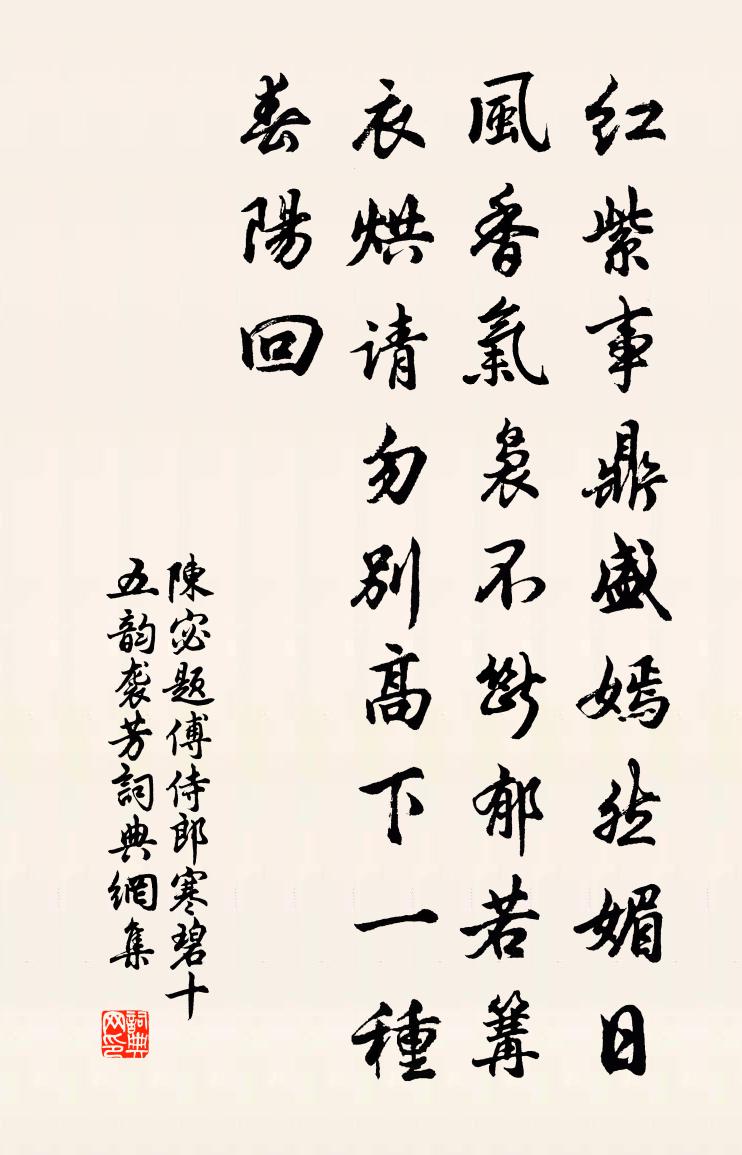 红紫事鼎盛嫣然媚日
風香氣裊不斷郁若篝
衣烘请勿别高下一種
春陽回
陳宓题傅侍郎寒碧十
五韵袭芳詞典網集
詞典网印